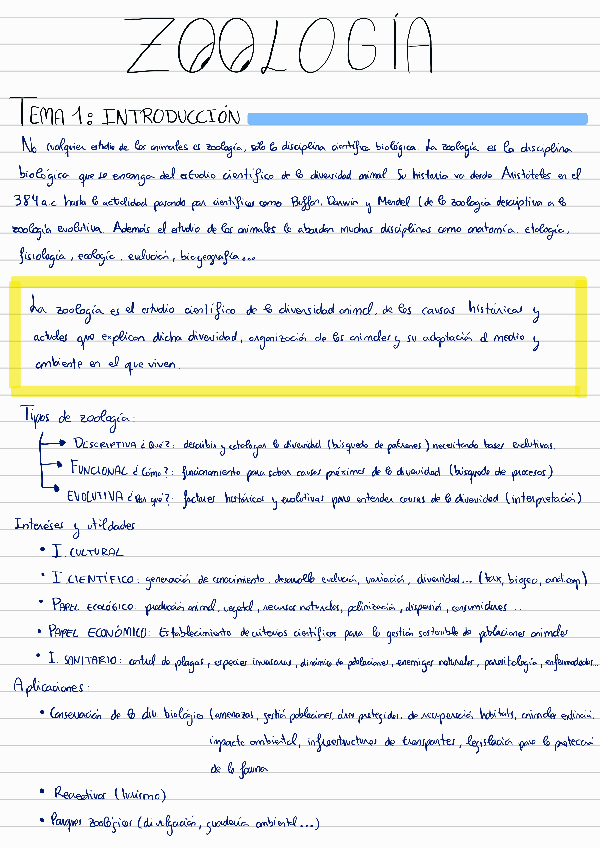 ZOOLOGÍA
TEMA 1: INTRODUCCIÓN
No cualquier estudio de los animales es zoología, solo la disciplina científica biológica. La zoología es la disciplina
biológica que se encarga del estudio científico de la diversidad animal. Su historia va desde Aristóteles en el
384 a.c hasta la actualidad pasando por científicos como Buffon, Darwin y Mendel (de la zoología descriptiva a la
zoología evolutiva. Además el estudio de los animales lo abordan muchas disciplinas como anatomía, etología,
fisiología, ecología, evolución, biogeografía...
La zoología es el estudio científico de la diversidad animal, de las causas históricas y
actuales que explican dicha diversidad, organización de los animales y su adaptación al medio y
ambiente en el que viven.
Tipos de zoología:
DESCRIPTIVA ¿Qué?: describir y catalogar la diversidad (búsqueda de patrones) necesitando bases evolutivas.
FUNCIONAL ¿Cómo?: funcionamiento para saber causas próximas de la diversidad (búsqueda de procesos)
EVOLUTIVA ¿Por qué?: factores históricos y evolutivas para entender causas de la diversidad (interpretación)
Intereses y utilidades
• I. CULTURAL
• I CIENTÍFICO: generación de conocimiento: desarrollo evolución, variación, diversidad... (tax, biogeo,
• PAPEL ECOLÓGICO: producción animal, vegetal, recursos naturales, polinización, dispersión, consumidores...
• PAPEL ECONÓMICO: Establecimiento de criterios científicos para la gestión sostenible de poblaciones animales
• I. SANITARIO: control de plagas, especies invasoras, dinámica de poblaciones, enemigos naturales, parasitología, enfermedades...
Aplicaciones:
• Conservación de la div biológica (amenazas, gestión poblaciones, áreas protegidas, de recuperación habitats, animales extinción,
impacto ambiental, infraestructuras de transportes, legislación para la protección
de la fauna
• Recreativas (turismo)
• Parques zoológicos (divulgación, ambiental...)